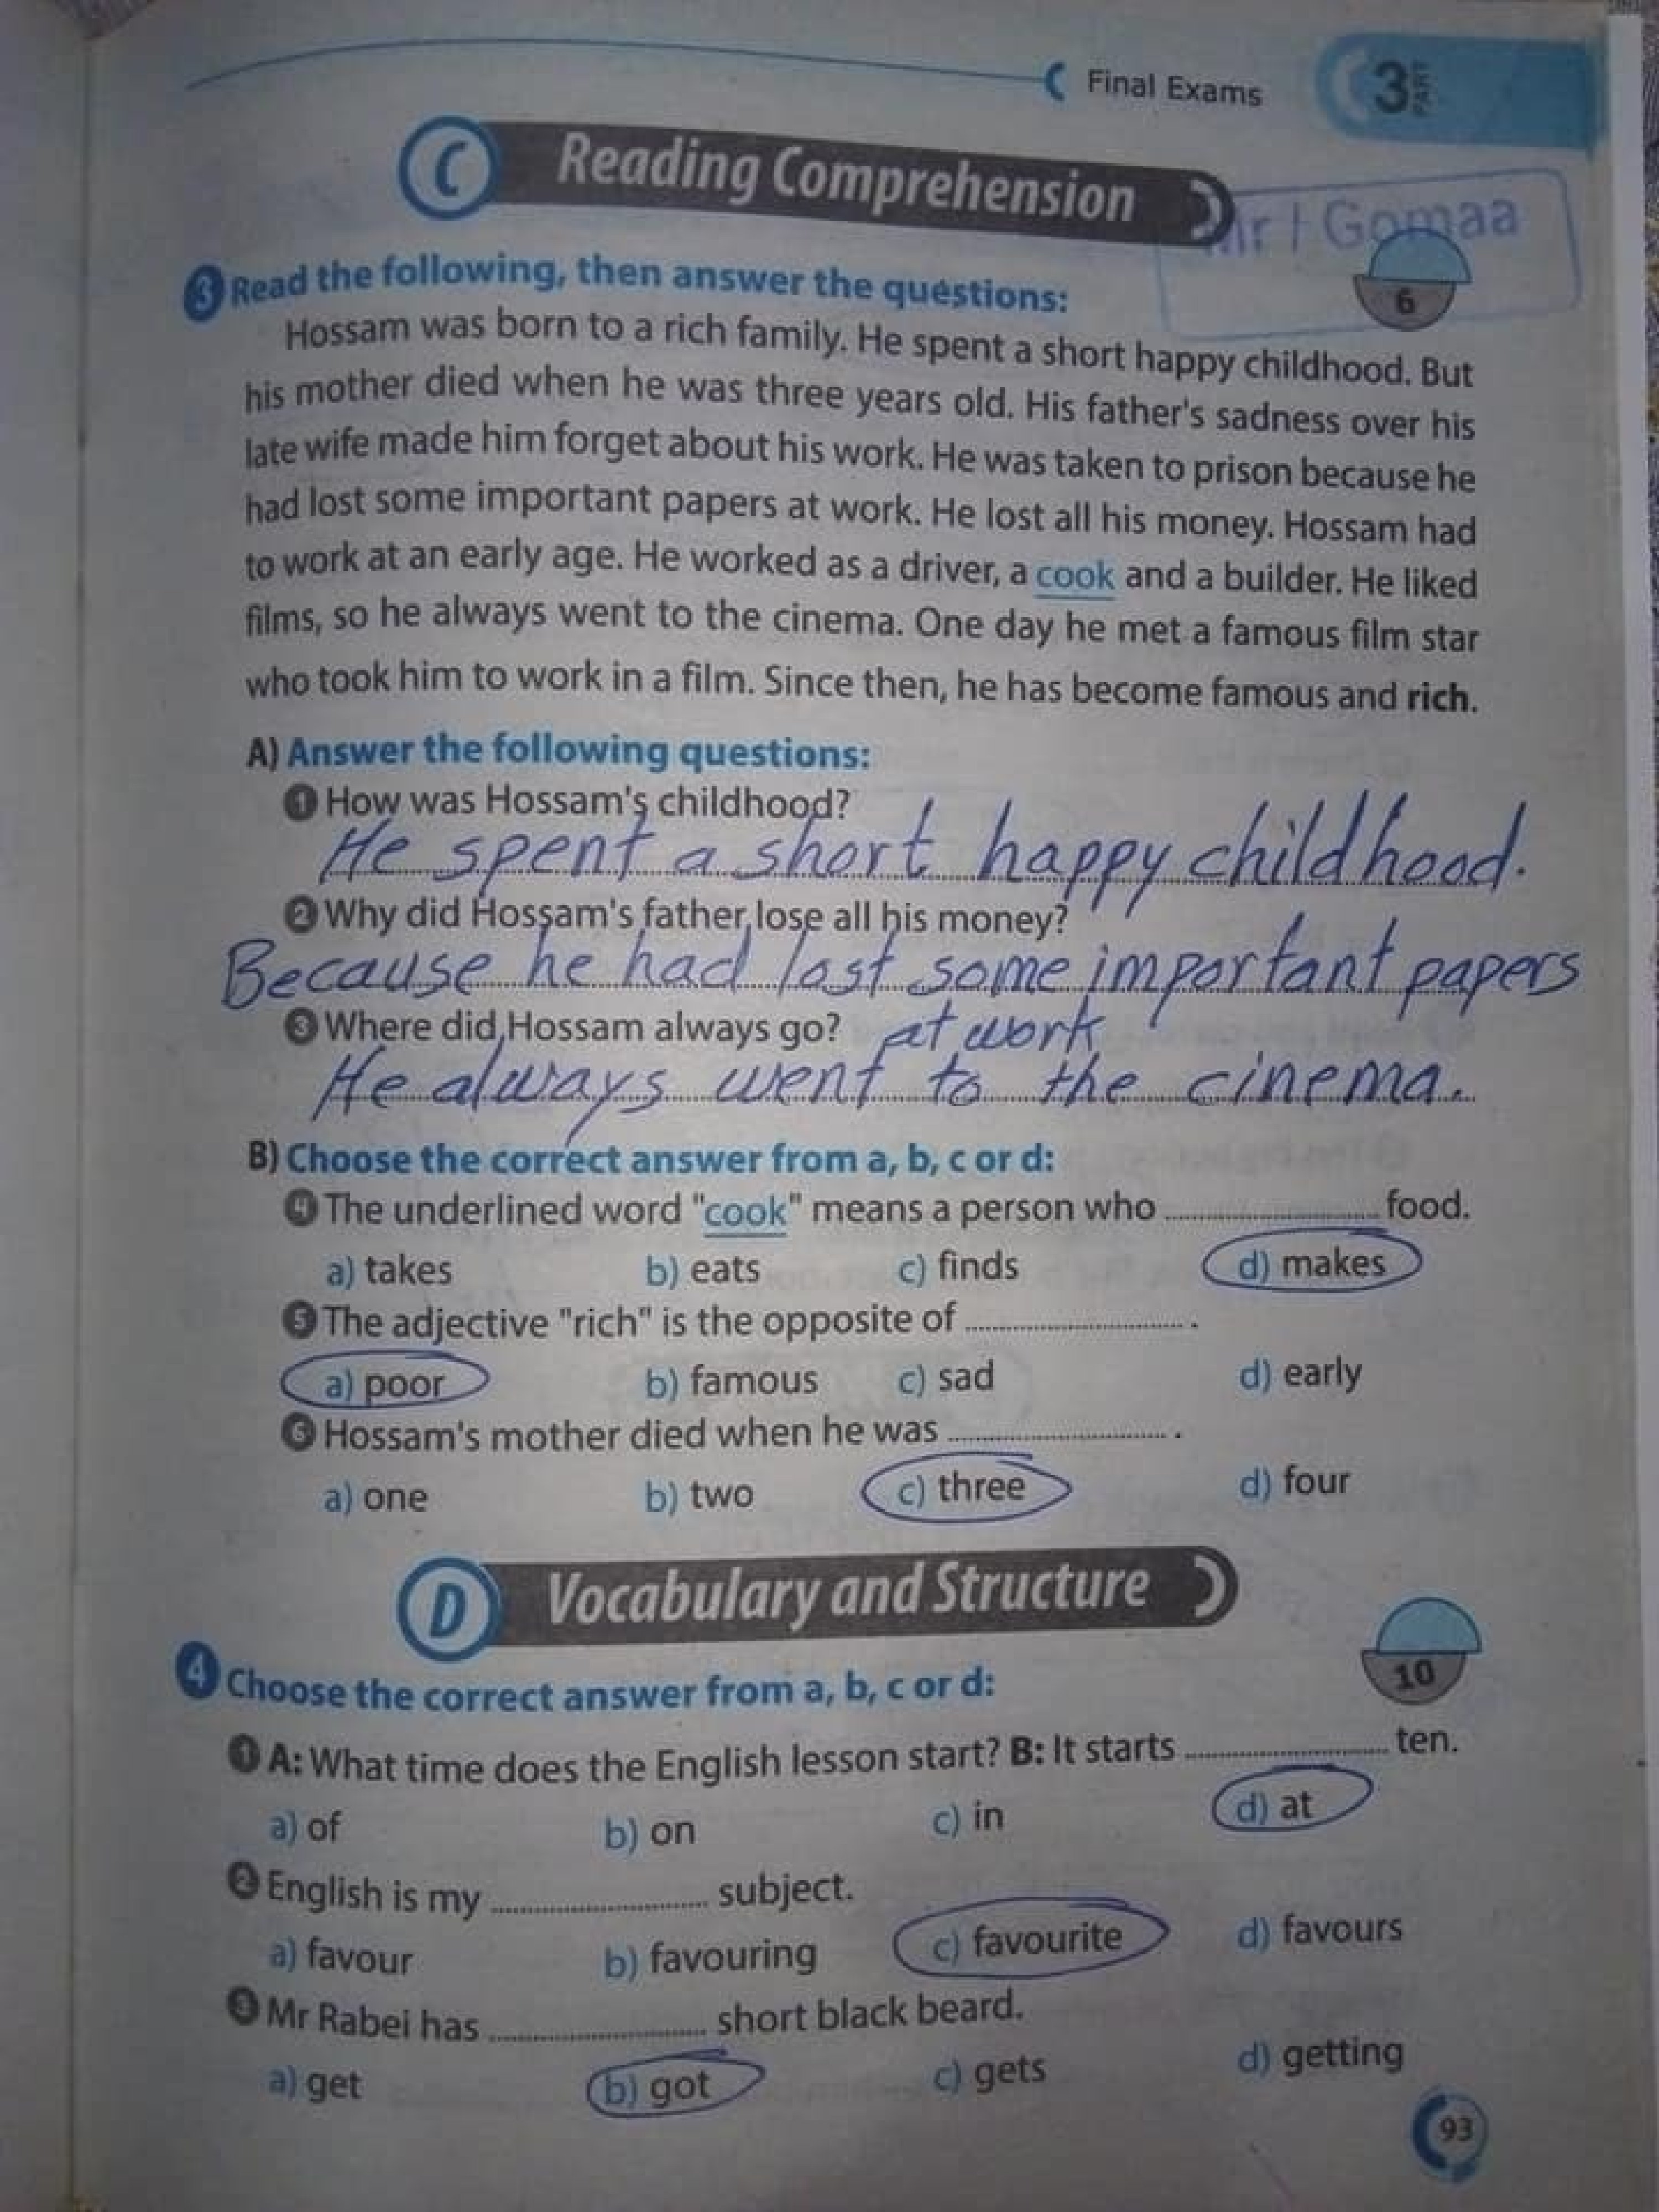 Final Exams
3 PART
C Reading Comprehension
Mr / Gomaa
6
3 Read the following, then answer the questions:
Hossam was born to a rich family. He spent a short happy childhood. But
his mother died when he was three years old. His father's sadness over his
late wife made him forget about his work. He was taken to prison because he
had lost some important papers at work. He lost all his money. Hossam had
to work at an early age. He worked as a driver, a cook and a builder. He liked
films, so he always went to the cinema. One day he met a famous film star
who took him to work in a film. Since then, he has become famous and rich.
A) Answer the following questions:
1 How was Hossam's childhood?
He spent a short happy childhood.
2 Why did Hossam's father lose all his money?
Because he had lost some important papers
at work
3 Where did Hossam always go?
He always went to the cinema.
B) Choose the correct answer from a, b, c or d:
4 The underlined word "cook" means a person who .................... food.
a) takes b) eats c) finds d) makes
5 The adjective "rich" is the opposite of .................... .
a) poor b) famous c) sad d) early
6 Hossam's mother died when he was .................... .
a) one b) two c) three d) four
D Vocabulary and Structure
10
4 Choose the correct answer from a, b, c or d:
1 A: What time does the English lesson start? B: It starts .................... ten.
a) of b) on c) in d) at
2 English is my .................... subject.
a) favour b) favouring c) favourite d) favours
3 Mr Rabei has .................... short black beard.
a) get b) got c) gets d) getting
93